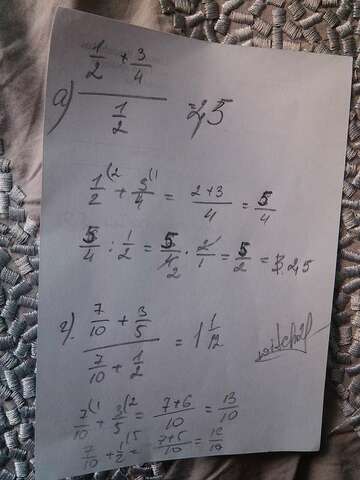 а) (1/2 + 3/4) / (1/2) = 2,5
1/2 (2 + 3/4 (1 = (2+3)/4 = 5/4
5/4 : 1/2 = 5/4 2 · 2/1 = 5/2 = 2.25
г). (7/10 + 3/5) / (7/10 + 1/2) = 1 1/12
7/10 (1 + 3/5 (2 = (7+6)/10 = 13/10
7/10 + 1/2 (5 = (7+5)/10 = 12/10